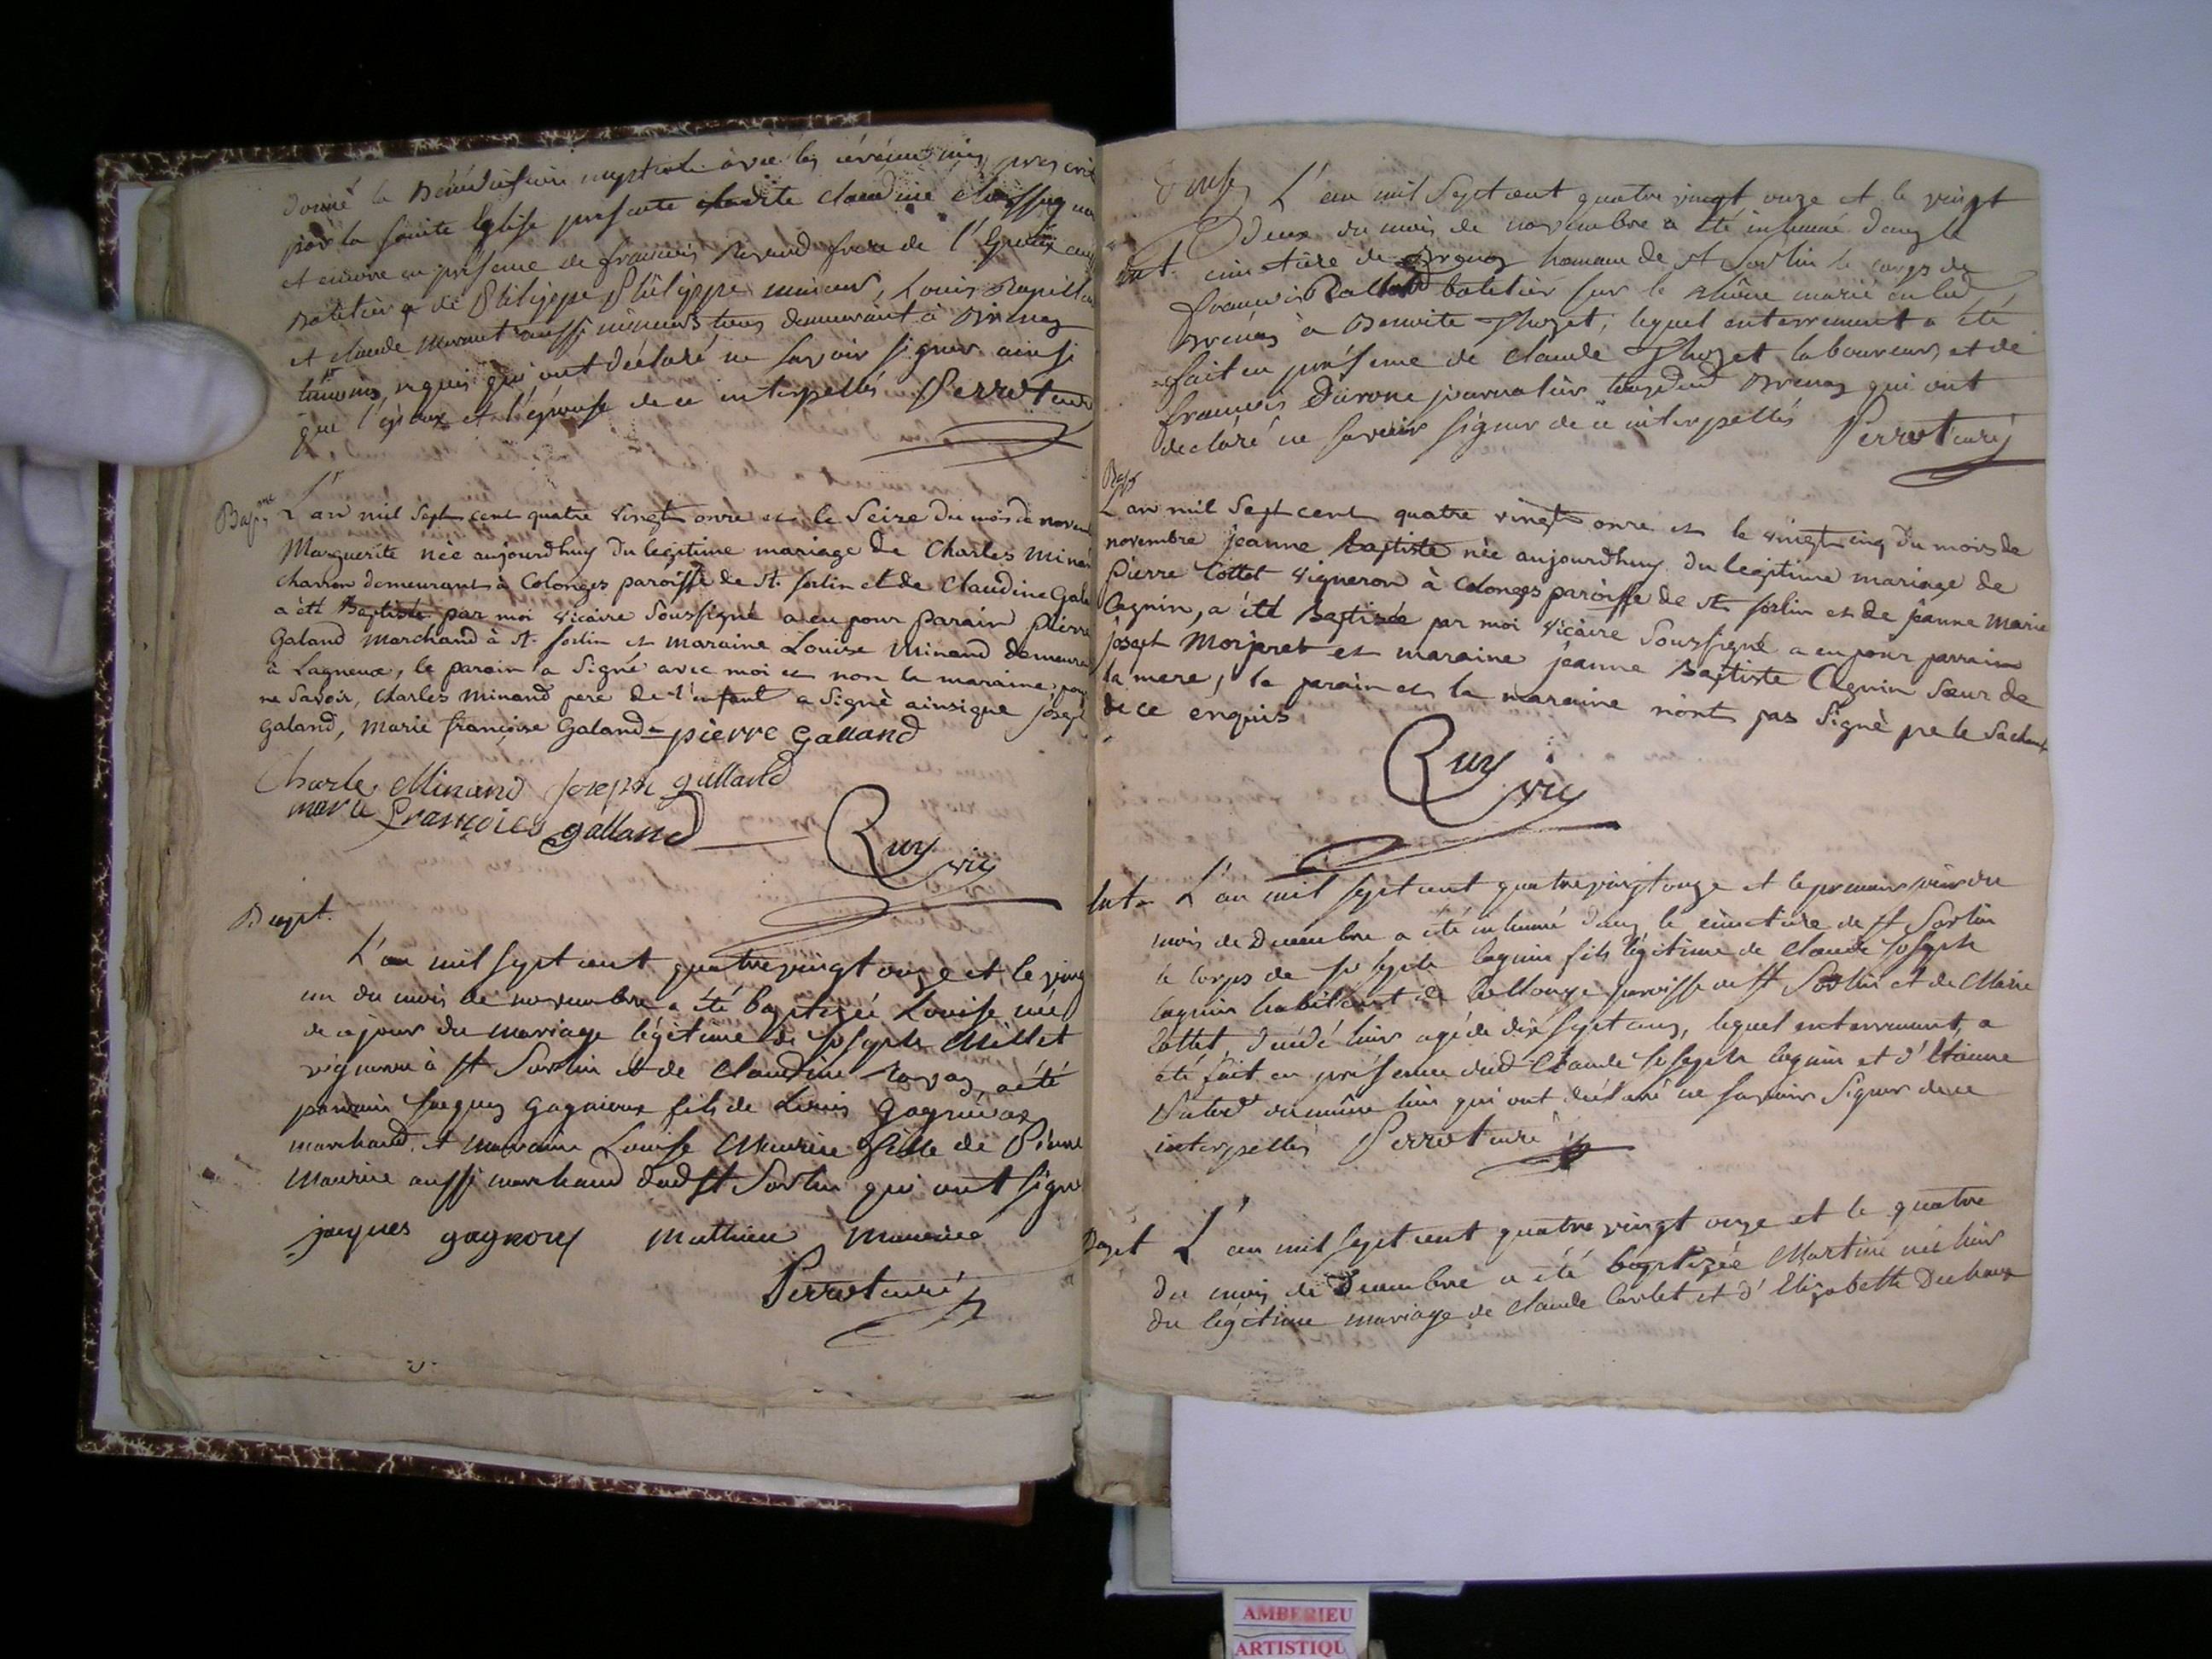 donné la Bénédiction nuptiale avec les cérémonies
par la sainte Eglise présente ladite claudine
et encore en présence de françois frere de l'
Batelier de Philippe Philippe mineur, Louis
et claude aussi mineurs tous demeurant à
témoins requis qui ont déclaré ne savoir signer ainsi
que l'époux et l'épouse de ce interpellés Perrot curé
Bap
L'an mil sept cent quatre vingt onze et le seize du mois de
Marguerite née aujourdhuy du legitime mariage de Charles
charron demeurant à Colonges paroisse de st. sorlin et de Claudine
a été Baptisée par moi vicaire soussigné a eu pour parain pierre
Galand marchand à st. sorlin et maraine Louise Minand
à Lagneux, le parain a signé avec moi et non la maraine pour
ne savoir, Charles minand pere de l'enfant a signé ainsi que joseph
galand, marie françoise Galand pierre galland
Charle Minand joseph galland
marie françoies galland
Ruy vic
Bapt.
L'an mil sept cent quatre vingt onze et le
un du mois de novembre a été baptizée Louise née
de ce jour du mariage légitime de joseph Millet
vigneron à st Sorlin et de claudine a été
parrain jacques gagnieux fils de Louis
marchand et marraine Louise Maurice fille de Pierre
Maurice aussi marchand dud st Sorlin qui ont signé
jacques gagnoux Mathieu Maurice
Perrot curé
L'an mil sept cent quatre vingt onze et le vingt
deux du mois de novembre a été inhumé dans le
cimetière de hameau de st Sorlin le corps de
françois batelier sur le Rhône marié aud
à Benoite Thozet, lequel enterrement a été
fait en présence de claude Thozet laboureur et de
françois journalier qui ont
declaré ne savoir signer de ce interpellés Perrot curé
Bap
L'an mil sept cent quatre vingt onze et le vingt cinq du mois de
novembre jeanne Baptiste née aujourdhuy du legitime mariage de
pierre Cottet vigneron à Colonges paroisse de st sorlin et de jeanne marie
Cagnin, a été Baptisée par moi vicaire soussigné a eu pour parrain
joseph et maraine jeanne Baptiste Cagnin sœur de
la mere, le parain et la maraine n'ont pas signé
de ce enquis
Ruy vic
Int. L'an mil sept cent quatre vingt onze et le premier jour du
mois de Decembre a été inhumé dans le cimetière de st Sorlin
le corps de joseph cagnin fils légitime de claude joseph
cagnin habitant de Collonge paroisse de st Sorlin et de Marie
Cottet décédé hier agé de dix sept ans, lequel enterrement a
été fait en présence dud Claude joseph cagnin et d'Etienne
du même lieu qui ont déclaré ne savoir signer de ce
interpellés Perrot curé
Bapt L'an mil sept cent quatre vingt onze et le quatre
du mois de Decembre a été baptizée Martine née hier
du légitime mariage de claude et d'Elizabeth
AMBERIEU
ARTISTIQU